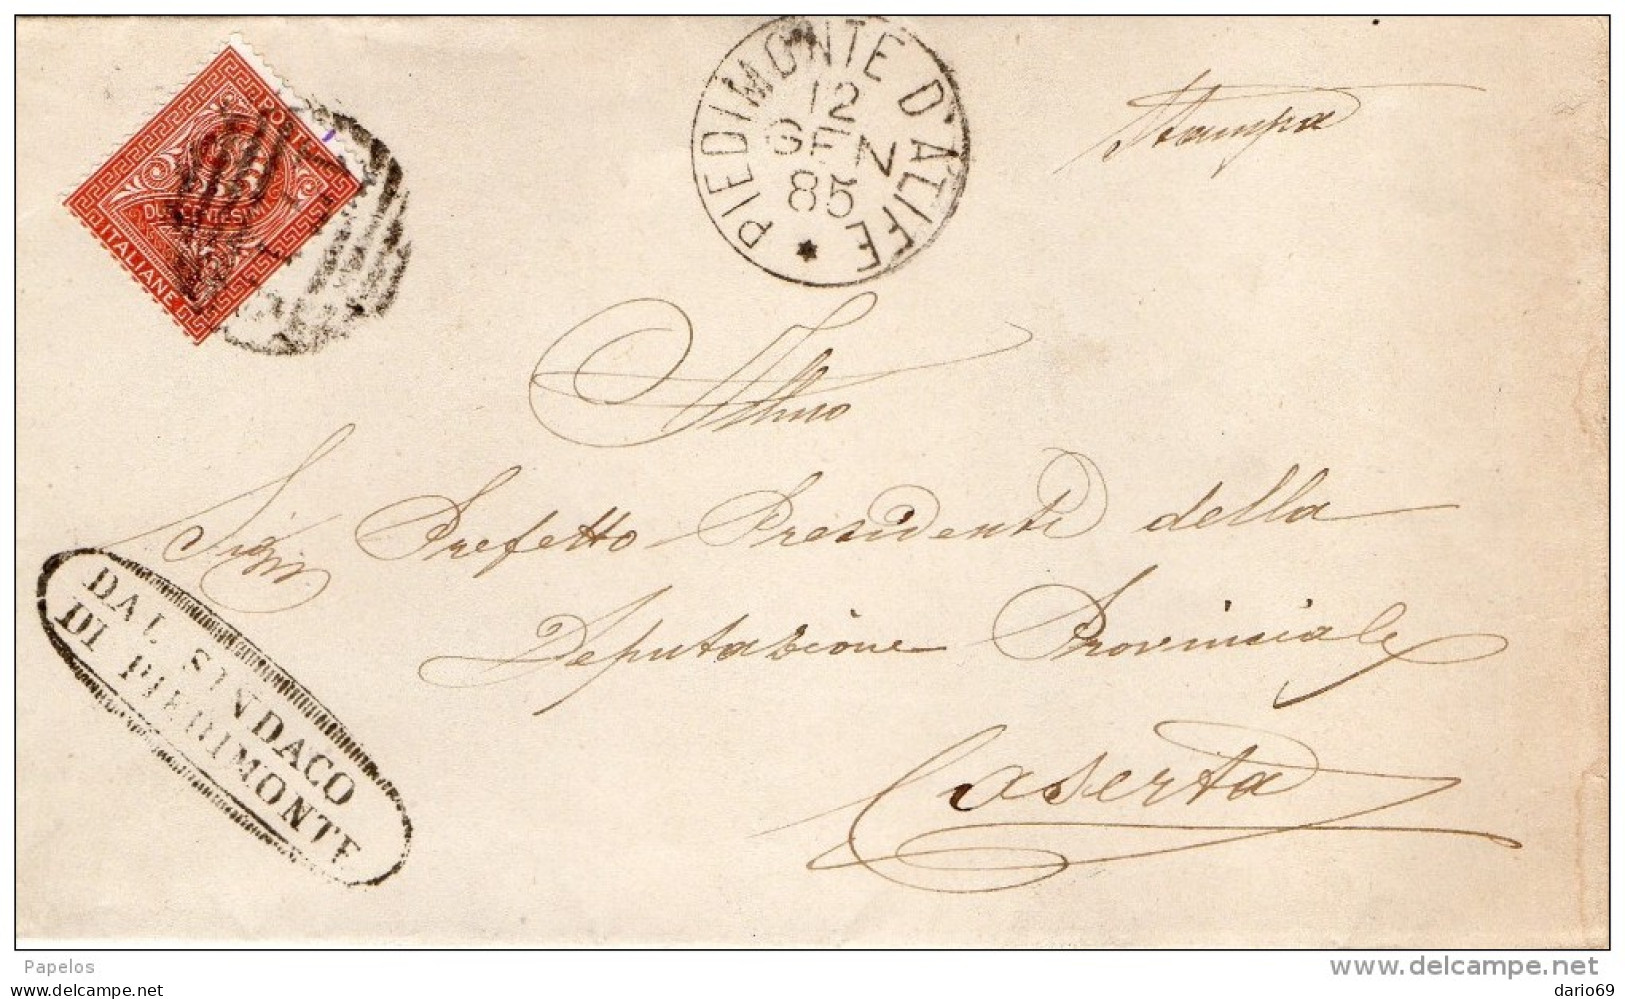 POSTE
DUE CENTESIMI
ITALIANE
PIEDIMONTE D'ALIFE
12
GEN
85
Stampa
Illmo
Sigr. Prefetto Presidente della
Deputazione Provinciale
Caserta
DAL SINDACO
DI PIEDIMONTE
Papelos
www.delcampe.net
dario69